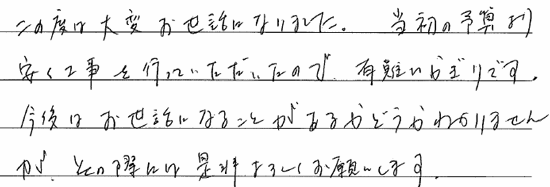 この度は大変お世話になりました。 当初の予算より
安く工事を行っていただいたので、有難いかぎりです。
今後はお世話になることがあるかどうかわかりません
が、その際には是非よろしくお願いします。